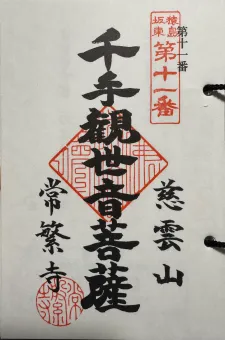 第十一番
猿島
坂東
第十一番
慈雲山
千手觀世音菩薩
常繁寺